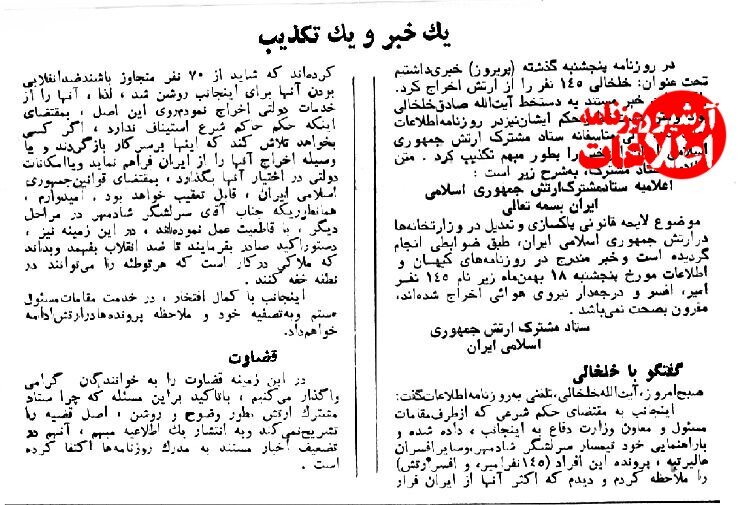 یك خبر و یك تكذیب
در روزنامه پنجشنبه گذشته (پریروز) خبری داشتیم
تحت عنوان: خلخالی ۱۴۵ نفر را از ارتش اخراج کرد.
خبر مستند به دستخط آیت‌الله صادق خلخالی
بود و متن حکم ایشان نیز در روزنامه اطلاعات
ولی متاسفانه ستاد مشترک ارتش جمهوری
اسلامی خبر را بطور مبهم تکذیب کرد . متن
ستاد مشترک، بشرح زیر است :
اعلامیه ستاد مشترک ارتش جمهوری اسلامی
ایران بسمه تعالی
موضوع لایحه قانونی پاکسازی و تعدیل در وزارتخانه‌ها
در ارتش جمهوری اسلامی ایران، طبق ضوابطی انجام
گردیده است و خبر مندرج در روزنامه‌های کیهان و
اطلاعات مورخ پنجشنبه ۱۸ بهمن‌ماه زیر نام ۱۴۵ نفر
امیر، افسر و درجه‌دار نیروی هوائی اخراج شده‌اند،
مقرون بصحت نمی‌باشد .
ستاد مشترک ارتش جمهوری
اسلامی ایران
گفتگو با خلخالی
صبح امروز، آیت‌الله خلخالی، تلفنی به روزنامه اطلاعات گفت:
اینجانب به مقتضای حکم شرعی که از طرف مقامات
مسئول و معاون وزارت دفاع به اینجانب ، داده شده و
با راهنمایی خود تیمسار سرلشگر شادمهر، و سایر افسران
عالیرتبه ، پرونده این افراد (۱۴۵ نفر امیر، و افسر ارتش)
را ملاحظه کردم و دیدم که اکثر آنها از ایران فرار
کرده‌اند که شاید از ۷۰ نفر متجاوز باشند ضد انقلابی
بودن آنها برای اینجانب روشن شد ، لذا ، آنها را از
خدمات دولتی اخراج نمودم روی این اصل ، بمقتضای
اینکه حکم حاکم شرع استیناف ندارد ، اگر کسی
بخواهد تلاش کند که اینها برسر کار بازگردند و یا
وسیله اخراج آنها را از ایران فراهم نماید و یا امکانات
دولتی در اختیار آنها بگذارد ، بمقتضای قوانین جمهوری
اسلامی ایران ، قابل تعقیب خواهد بود . امیدوارم ،
همانطوریکه جناب آقای سرلشگر شادمهر در مراحل
دیگر ، با قاطعیت عمل نموده‌اند ، در این زمینه نیز ،
دستور اکید صادر بفرمایند تا ضد انقلاب بفهمد و بداند
که ملاکی در کار است که هر توطئه را می‌توانند در
نطفه خفه کنند .
اینجانب با کمال افتخار ، در خدمت مقامات مسئول
هستم و به تصفیه خود و ملاحظه پرونده‌ها در ارتش ادامه
خواهم داد.
قضاوت
در این زمینه قضاوت را به خوانندگان گرامی
واگذار می‌کنیم ، با تاکید بر این مسئله که چرا ستاد
مشترک ارتش بطور وضوح و روشن ، اصل قضیه را
تشریح نمی‌کند و به انتشار یك اطلاعیه مبهم ، آنهم در
تضعیف اخبار مستند به مدرك روزنامه‌ها اکتفا کرده
است .
آرشیو روزنامه
اطلاعات